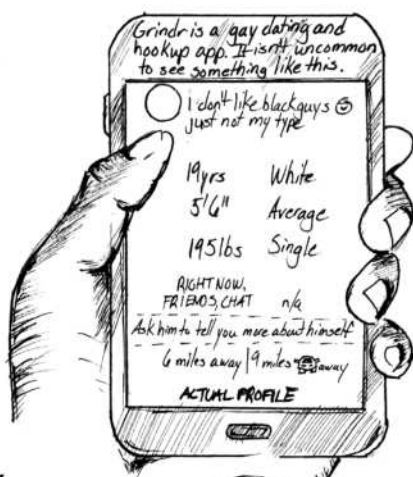 Grindr is a gay dating and
hookup app. It isn't uncommon
to see something like this.
I don't like blackguys
just not my type
19yrs White
5'6" Average
195lbs Single
RIGHT NOW,
FRIENDS, CHAT n/a
Ask him to tell you more about himself
6 miles away | 9 miles away
ACTUAL PROFILE